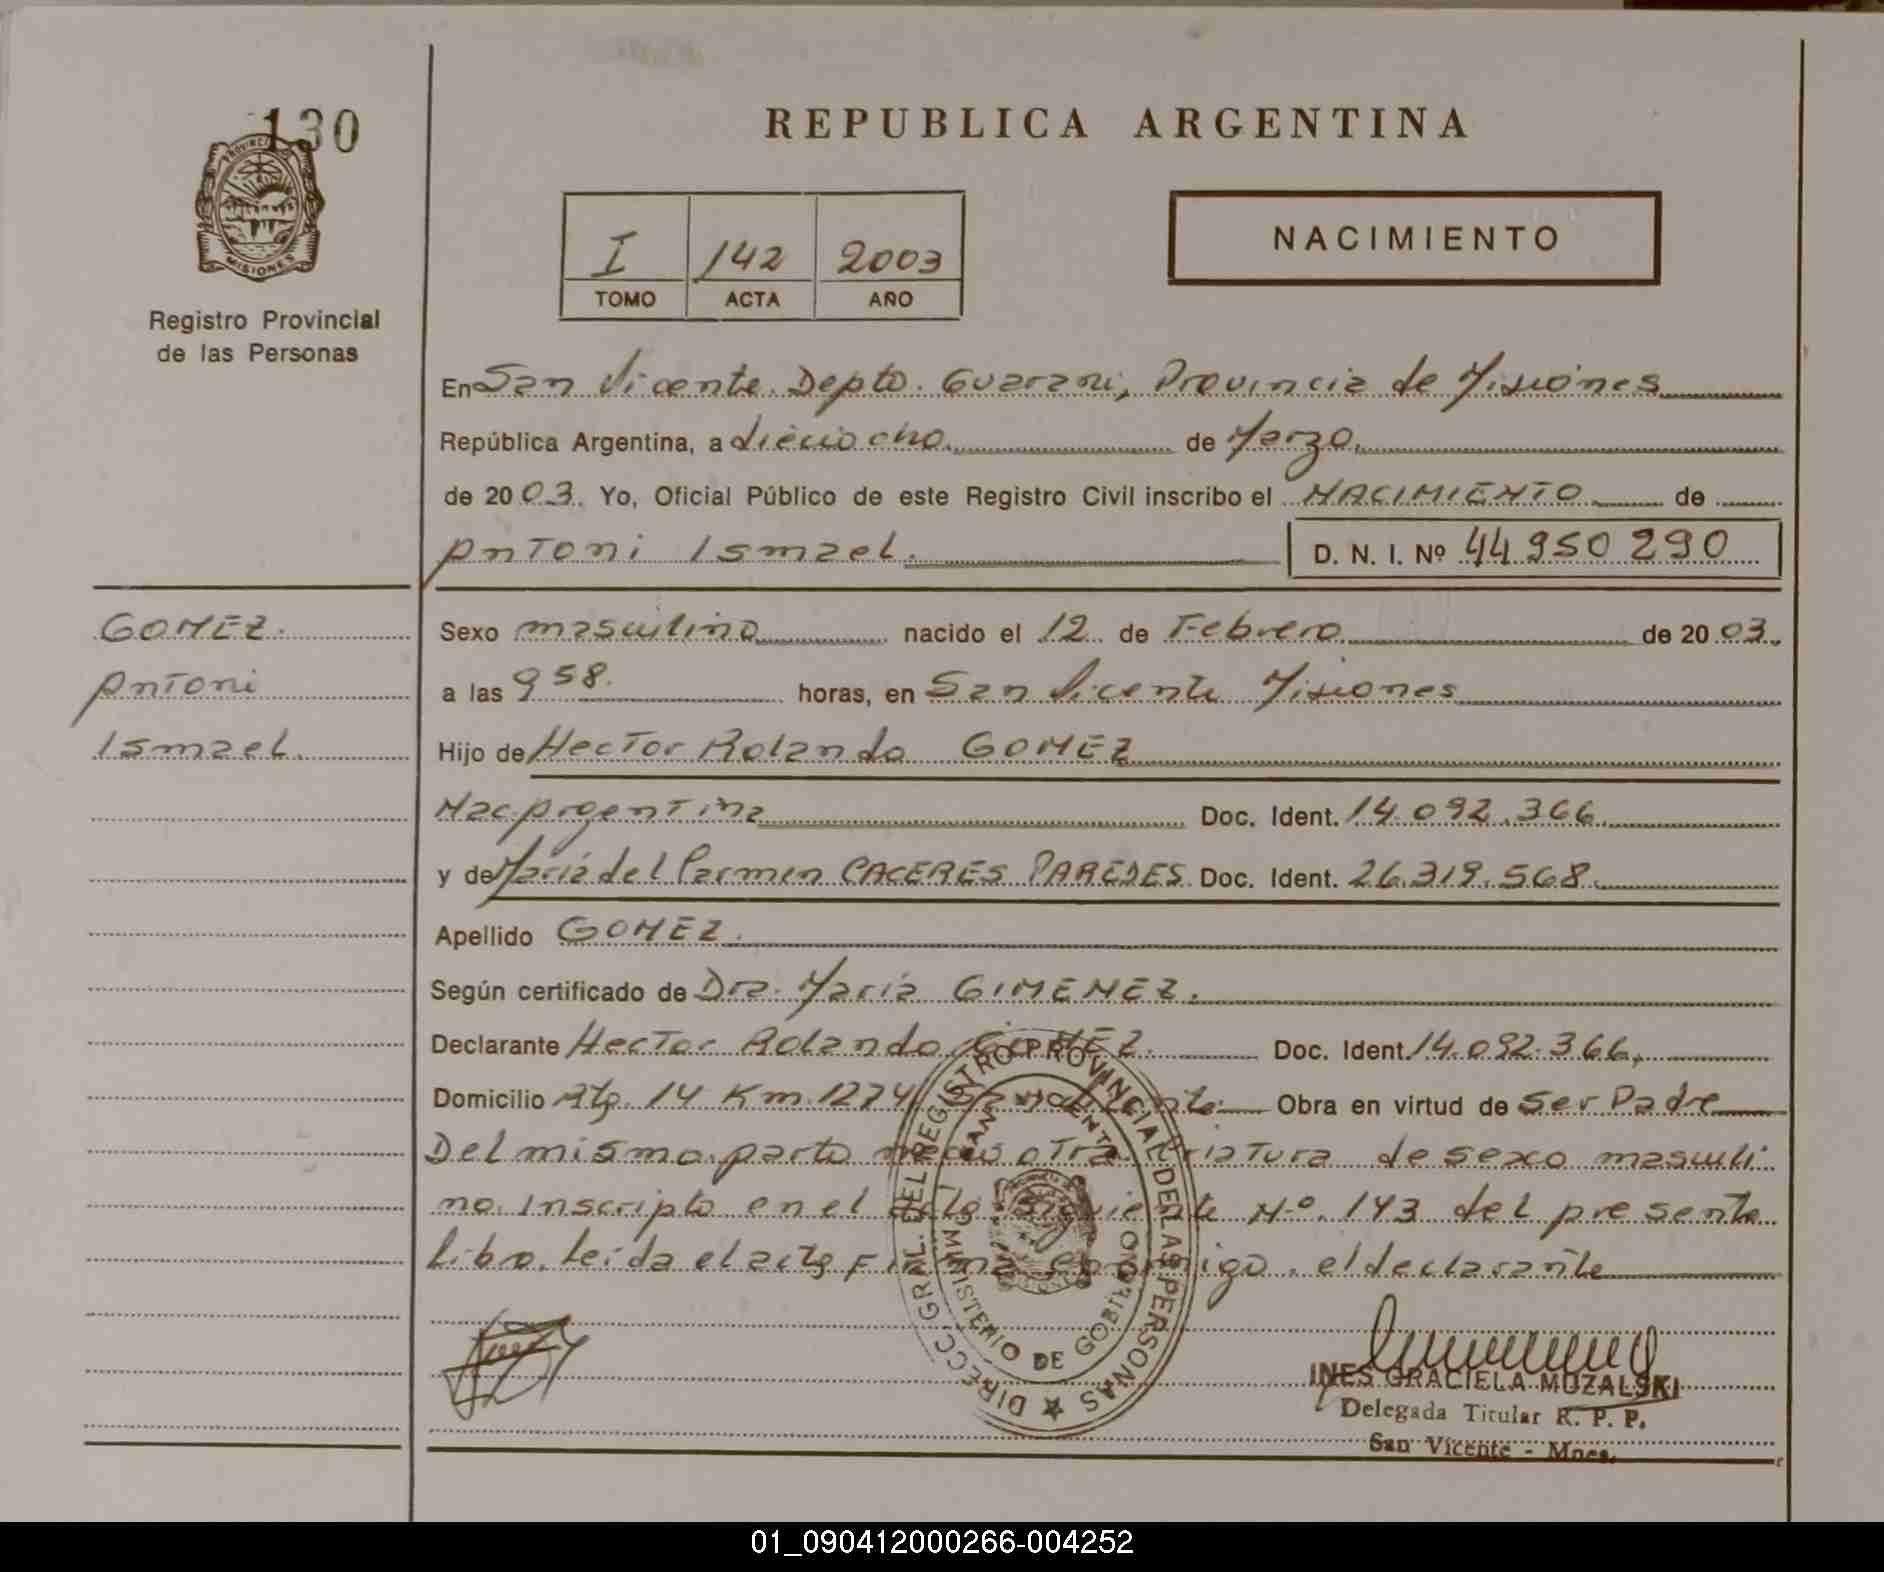 130
PROVINCIA DE
MISIONES
Registro Provincial
de las Personas
REPUBLICA ARGENTINA
I 142 2003
TOMO ACTA AÑO
NACIMIENTO
En San Vicente. Depto. Guarani, Provincia de Misiones
República Argentina, a dieciocho. de Marzo.
de 2003. Yo, Oficial Público de este Registro Civil inscribo el NACIMIENTO de
Antoni Ismael. D. N. I. Nº 44 950 290
GOMEZ.
Antoni
Ismael.
Sexo masculino nacido el 12 de Febrero de 2003.
a las 9 58. horas, en San Vicente Misiones
Hijo de Hector Rolando GOMEZ
Nac. Argentina Doc. Ident. 14.092.366.
y de María del Carmen CACERES PAREDES. Doc. Ident. 26.319.568.
Apellido GOMEZ.
Según certificado de Dra. María GIMENEZ.
Declarante Hector Rolando GOMEZ. Doc. Ident. 14.092.366.
Domicilio Rta. 14 Km. 1274 San Vicente. Obra en virtud de Ser Padre
Del mismo parto nacio otra criatura de sexo masculi
no. Inscripto en el acta siguiente Nº. 143 del presente
libro. Leída el acta Firma conmigo. el declarante
DIRECC. GRAL. DEL REGISTRO PROVINCIAL DE LAS PERSONAS
SAN VICENTE
MINISTERIO DE GOBIERNO
INES GRACIELA MUZALSKI
Delegada Titular R. P. P.
San Vicente - Mnes.
01_090412000266-004252